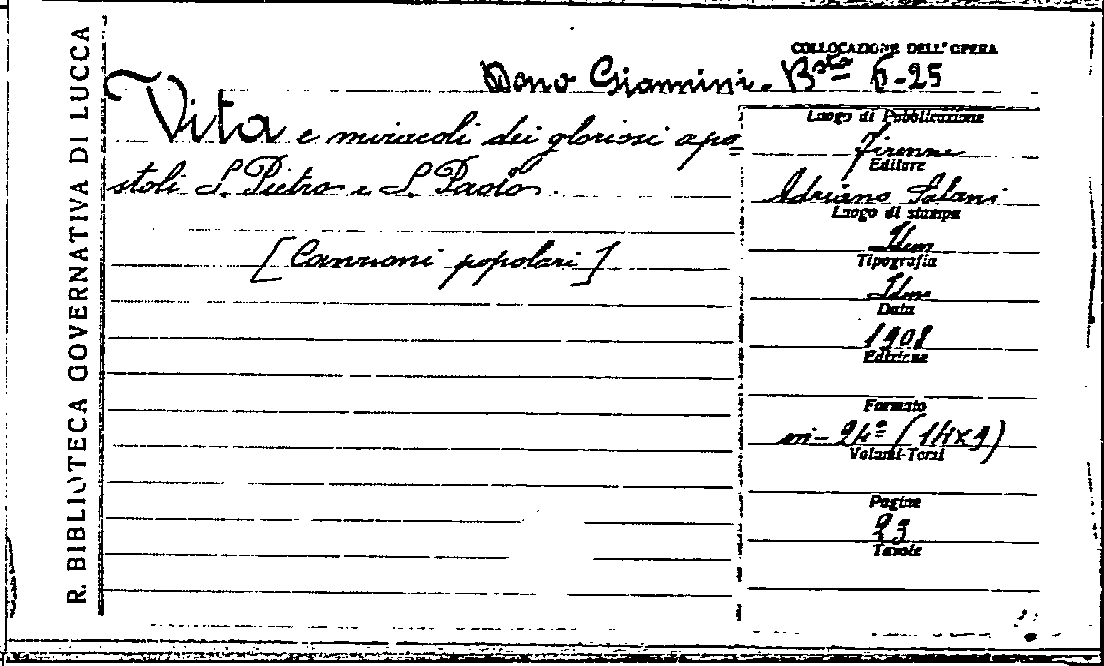 R. BIBLIOTECA GOVERNATIVA DI LUCCA
COLLOCAZIONE DELL'OPERA
Dono Giannini. Bsta 6-25
Vita e miracoli dei gloriosi apo=
stoli S. Pietro e S. Paolo.
[Canzoni popolari]
Luogo di Pubblicazione
Firenze
Editore
Adriano Salani
Luogo di stampa
Idem
Tipografia
Idem
Data
1908
Edizione
Formato
in-24º (14x9)
Volumi-Tomi
Pagine
23
Tavole